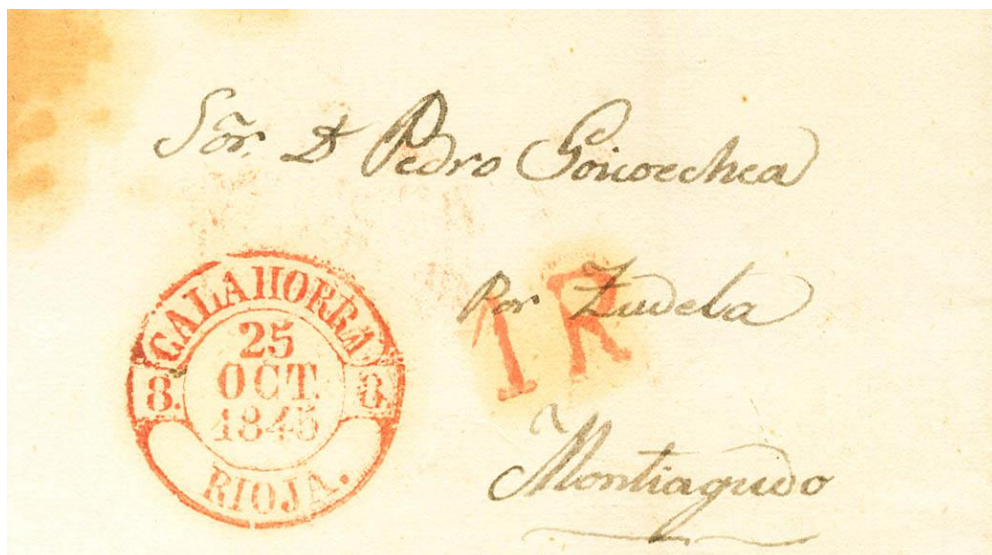 Sōr. D Pedro Goicoechea
Por Tudela
1R
Montiagudo
CALAHORRA
8. 8.
25
OCT.
1845
RIOJA.